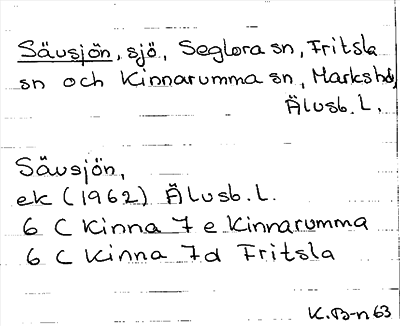 Säusjön, sjö, Seglora sn, Fritsla
sn och Kinnarumma sn, Markshd,
Älvsb. L.
Säusjön,
ek (1962) Älvsb. L.
6 C Kinna 7 e Kinnarumma
6 C Kinna 7d Fritsla
K.B-n 63